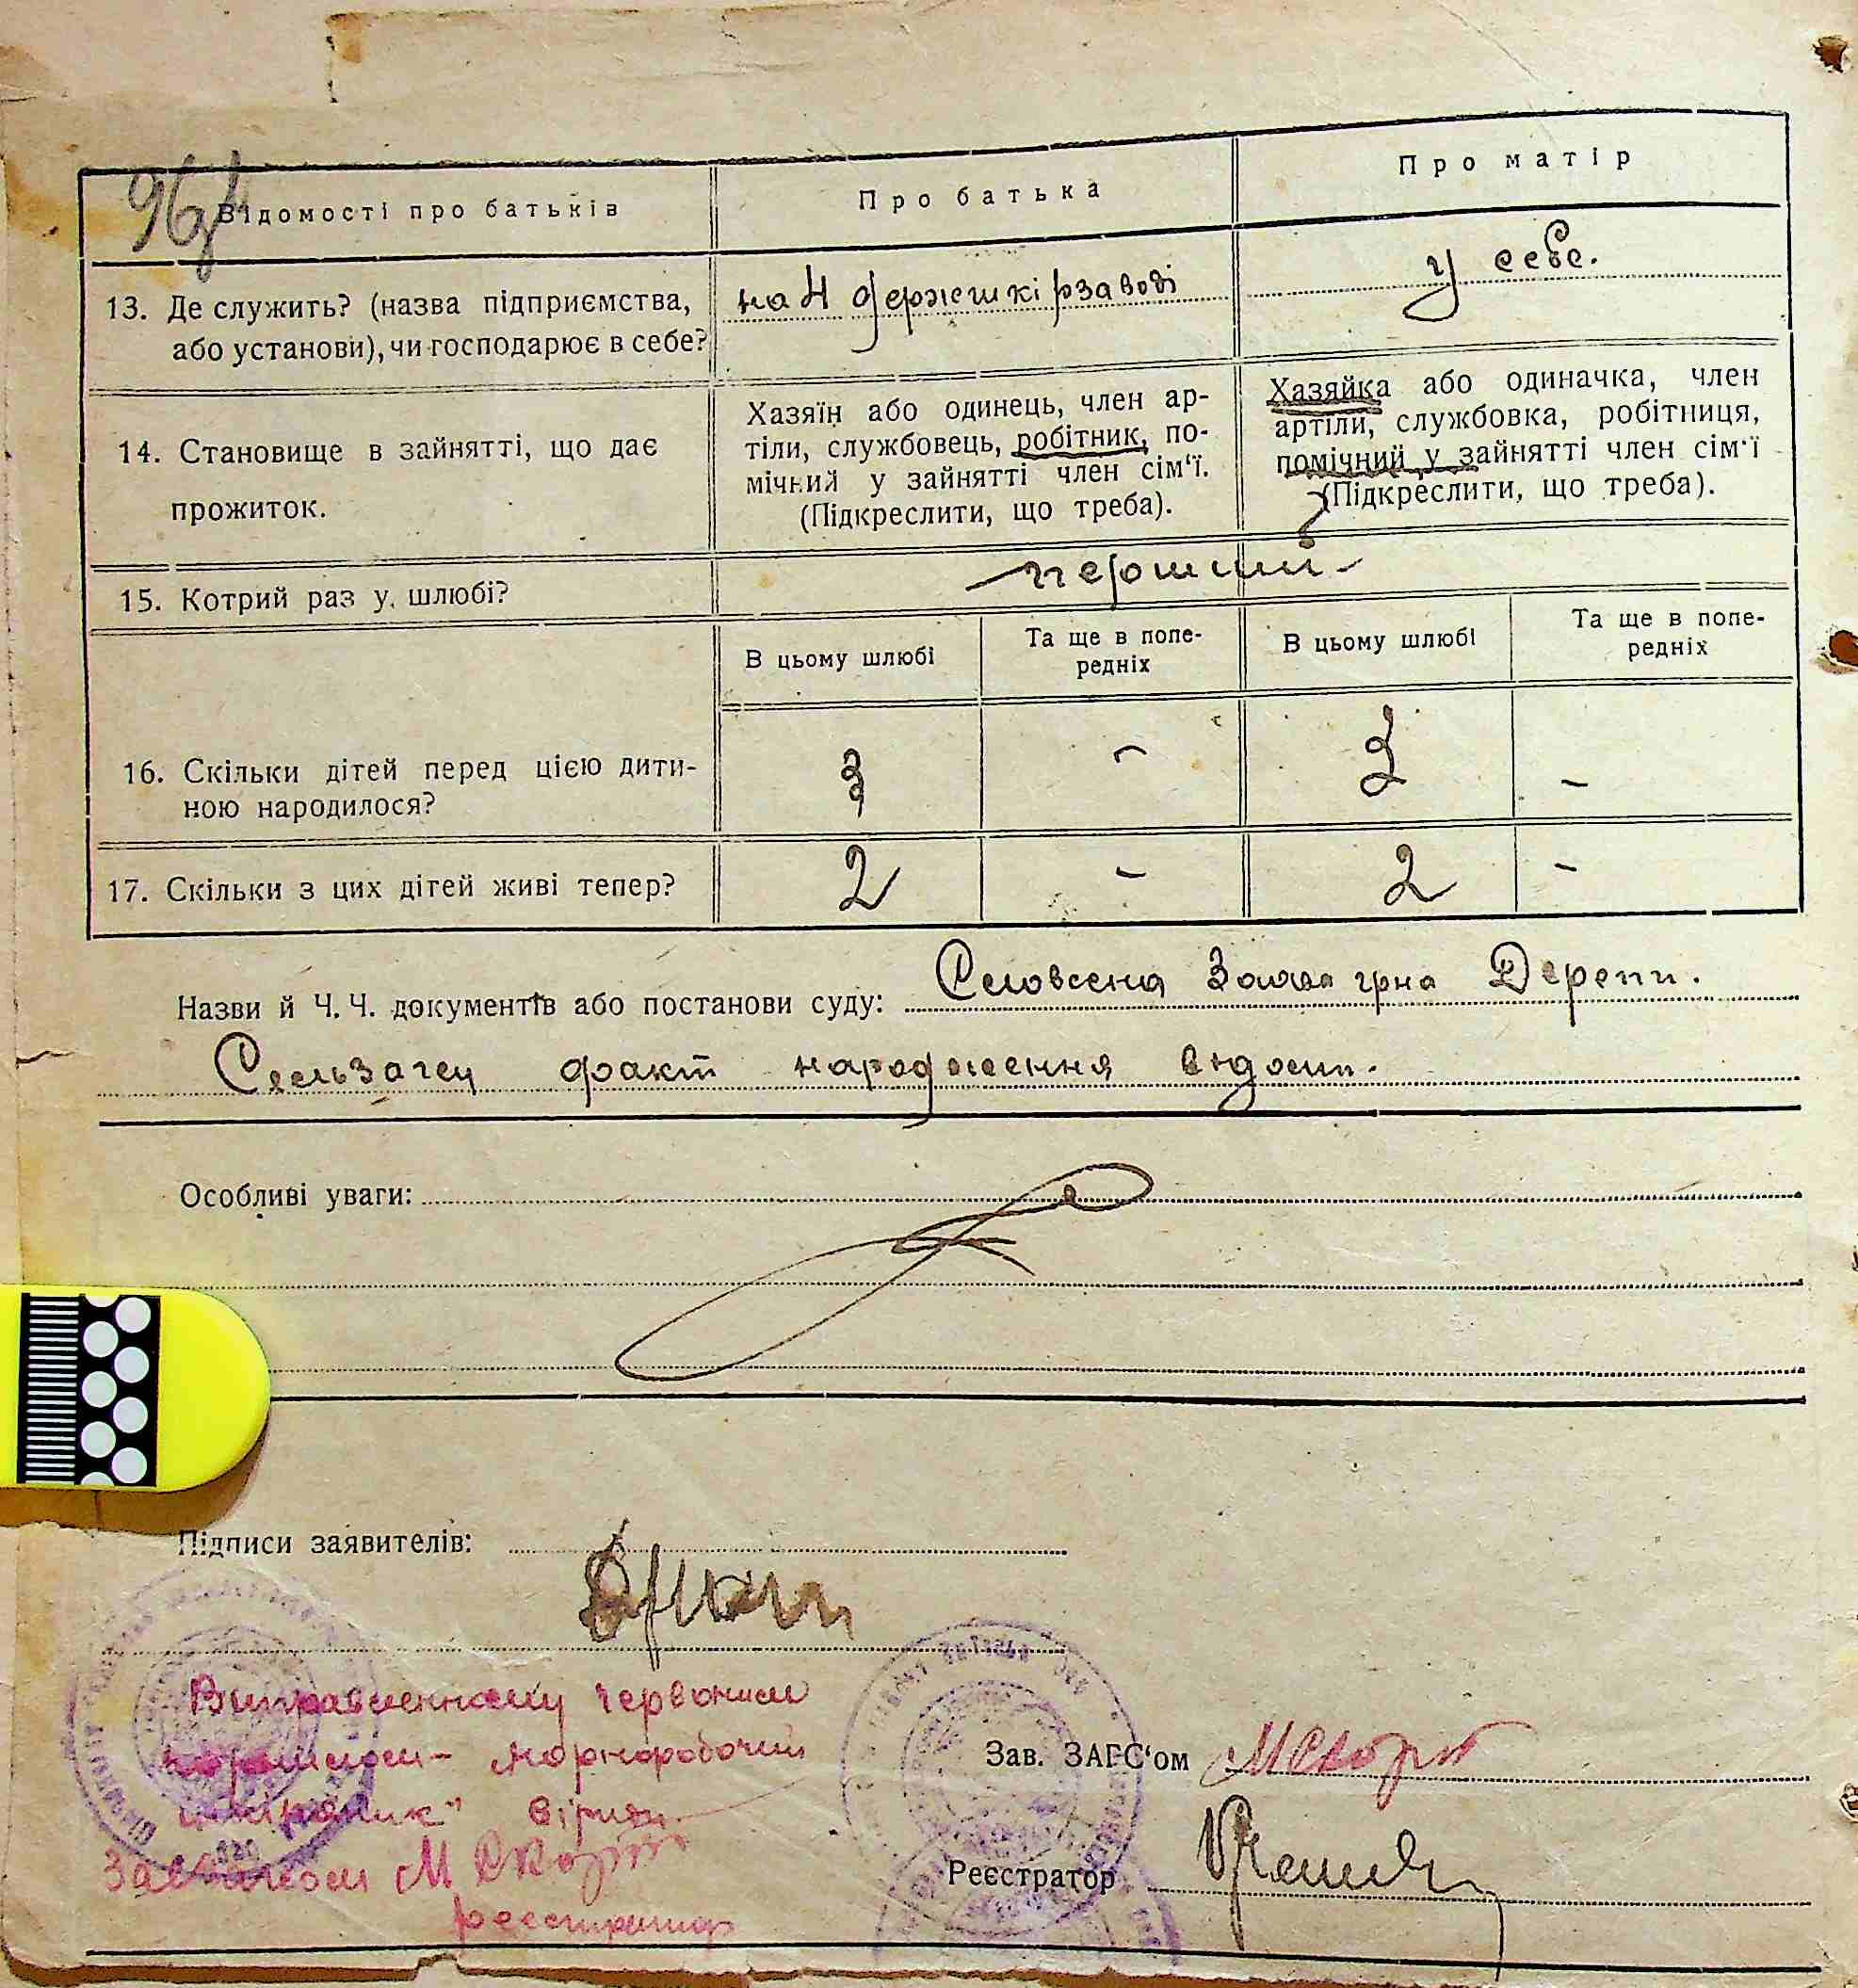 Відомості про батьків
Про батька
Про матір
13. Де служить? (назва підприємства, або установи), чи господарює в себе?
на 4 держшкірзаводі
у себе.
14. Становище в зайнятті, що дає прожиток.
Хазяїн або одинець, член ар-
тіли, службовець, робітник, по-
мічний у зайнятті член сім'ї.
(Підкреслити, що треба).
Хазяйка або одиначка, член
артіли, службовка, робітниця,
помічний у зайнятті член сім'ї
(Підкреслити, що треба).
15. Котрий раз у шлюбі?
перший
В цьому шлюбі
Та ще в попе-
редніх
В цьому шлюбі
Та ще в попе-
редніх
16. Скільки дітей перед цією дити-
ною народилося?
3 - 3 -
17. Скільки з цих дітей живі тепер?
2 - 2 -
Назви й Ч. Ч. документів або постанови суду:
факт народження
Особливі уваги:
Підписи заявителів:
Виправленному червоним
чорноробочий
вірити.
Зав. ЗАГС'ом М Скорт
Реєстратор
реєстратор